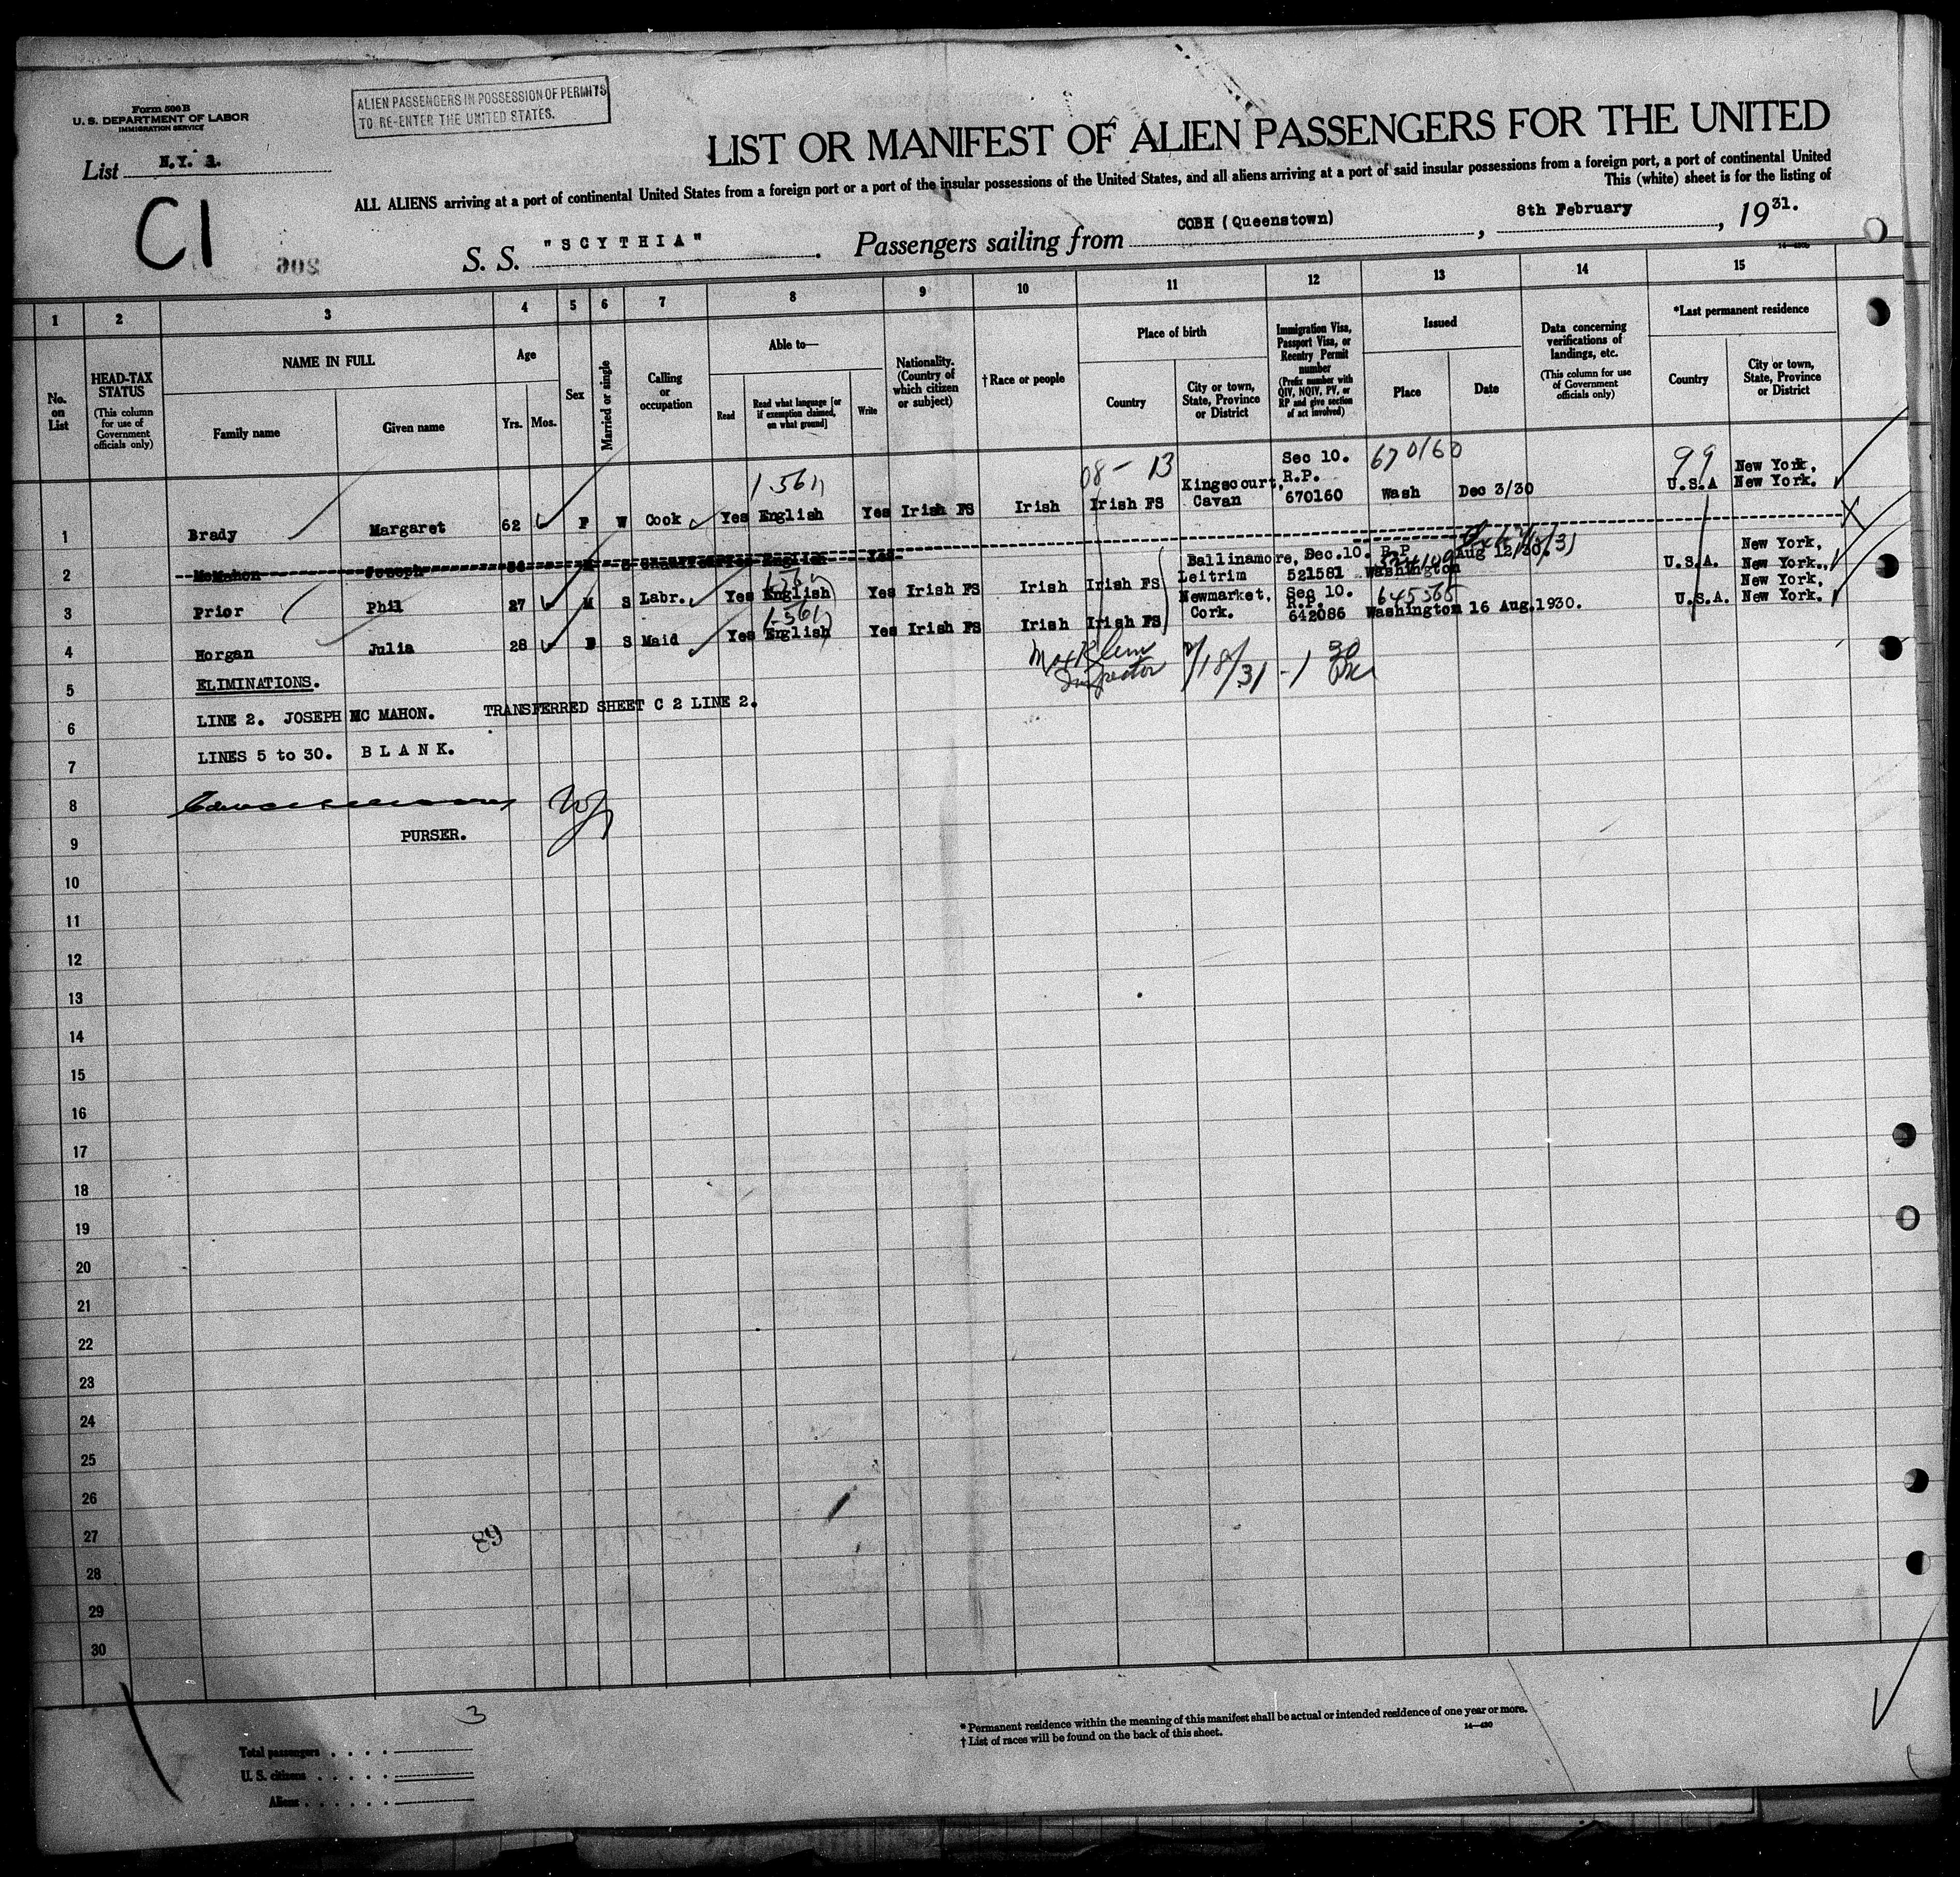 Form 500 B
U. S. DEPARTMENT OF LABOR
IMMIGRATION SERVICE
ALIEN PASSENGERS IN POSSESSION OF PERMITS
TO RE-ENTER THE UNITED STATES.
LIST OR MANIFEST OF ALIEN PASSENGERS FOR THE UNITED
List N.Y.
ALL ALIENS arriving at a port of continental United States from a foreign port or a port of the insular possessions of the United States, and all aliens arriving at a port of said insular possessions from a foreign port, a port of continental United
This (white) sheet is for the listing of
C1
S. S. "SCYTHIA". Passengers sailing from COBH (Queenstown), 8th February, 1931.
1 2 3 4 5 6 7 8 9 10 11 12 13 14 15
No. on List
HEAD-TAX STATUS (This column for use of Government officials only)
NAME IN FULL
Family name Given name
Age
Yrs. Mos.
Sex
Married or single
Calling or occupation
Able to—
Read Read what language [or if exemption claimed, on what ground] Write
Nationality. (Country of which citizen or subject)
† Race or people
Place of birth
Country City or town, State, Province or District
Immigration Visa, Passport Visa, or Reentry Permit number (Prefix number with QIV, NQIV, PV, or RP and give section of act involved)
Issued
Place Date
Data concerning verifications of landings, etc. (This column for use of Government officials only)
*Last permanent residence
Country City or town, State, Province or District
1 Brady Margaret 62 F W Cook Yes English Yes Irish FS Irish Irish FS Kingscourt, Cavan Sec 10. R.P. 670160 Wash Dec 3/30 U.S.A New York, New York.
08 - 13 670160 99
2 McMahon Joseph English Yes
3 Prior Phil 27 M S Labr. Yes English Yes Irish FS Irish Irish FS Ballinamore, Leitrim Sec.10. R.P. 521581 Washington Aug 12/30. U.S.A. New York, New York.
4 Horgan Julia 28 S Maid Yes English Yes Irish FS Irish Irish FS Newmarket, Cork. Sec 10. R.P. 642086 Washington 16 Aug.1930. U.S.A. New York, New York.
645565
Inspector 2/18/31
5 ELIMINATIONS.
6 LINE 2. JOSEPH MC MAHON. TRANSFERRED SHEET C 2 LINE 2.
7 LINES 5 to 30. BLANK.
8
9 PURSER.
10
11
12
13
14
15
16
17
18
19
20
21
22
23
24
25
26
27
28
29
30
89
3
Total passengers
U. S. citizens
Aliens
* Permanent residence within the meaning of this manifest shall be actual or intended residence of one year or more.
† List of races will be found on the back of this sheet.
14—430